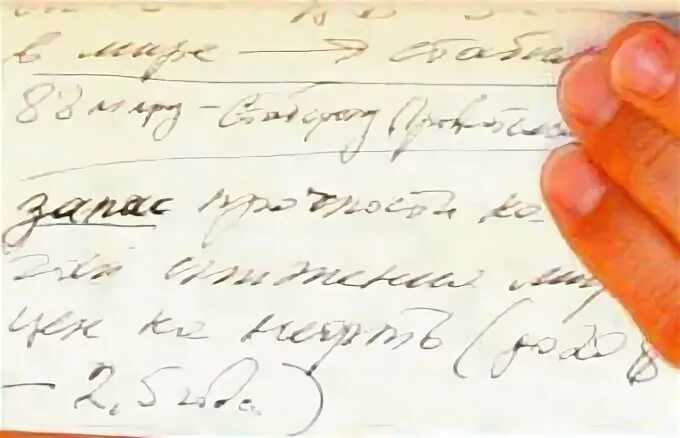 в мире → стабил
88 млрд – Стабфонд Правительс
запас прочности на
снижения мир
цен на нефть (до 20 $
– 2,5 года)